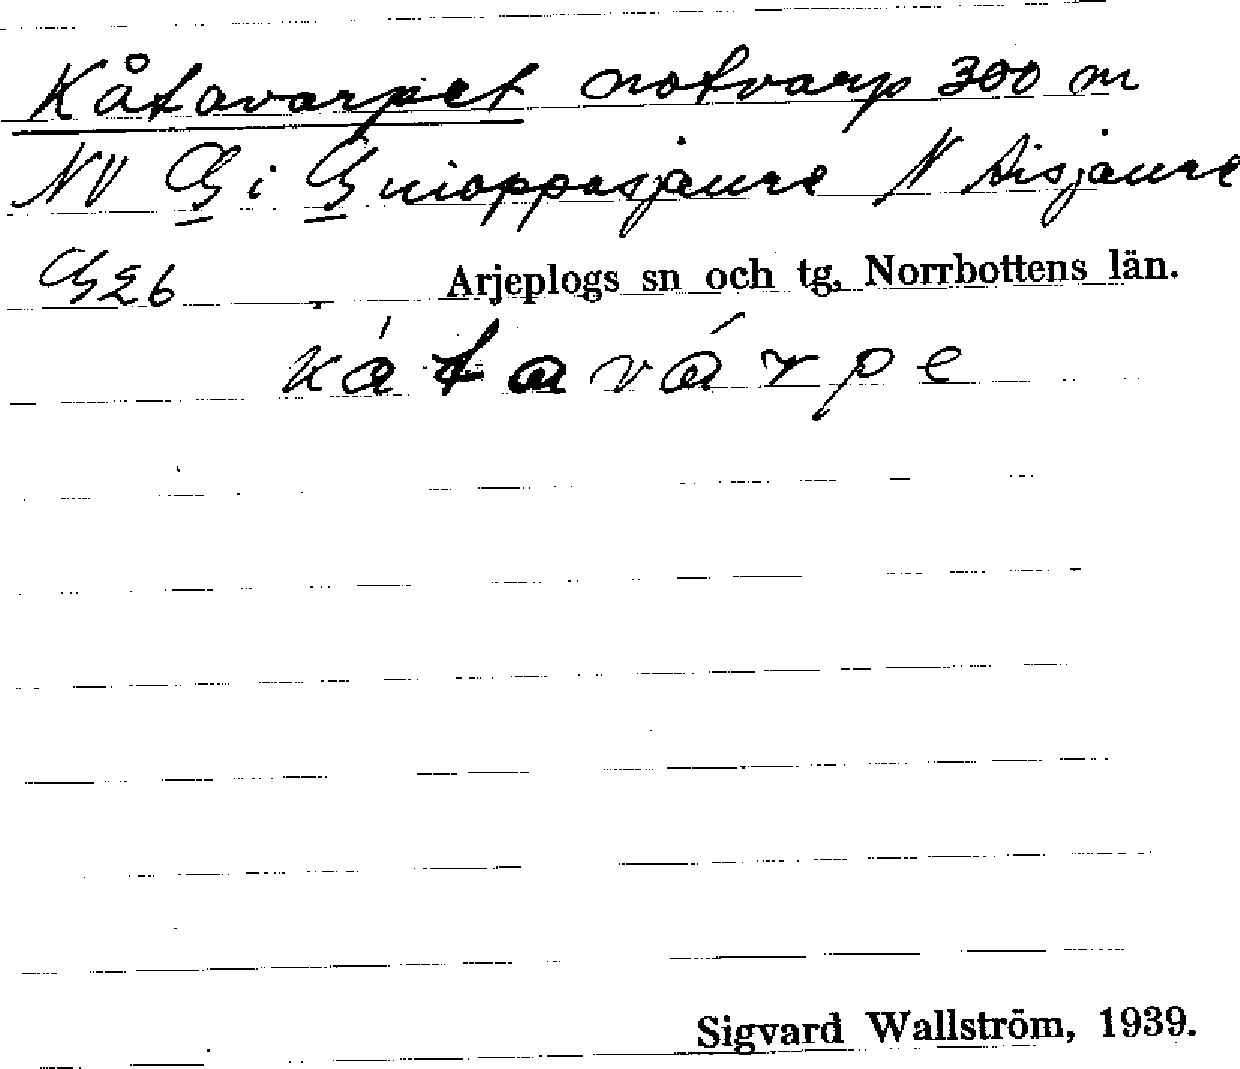 Kåtavarpet notvarp 300 m
NV G i Gnioppasjaure N Aisjaure
G26 Arjeplogs sn och tg, Norrbottens län.
kátavárpe
Sigvard Wallström, 1939.